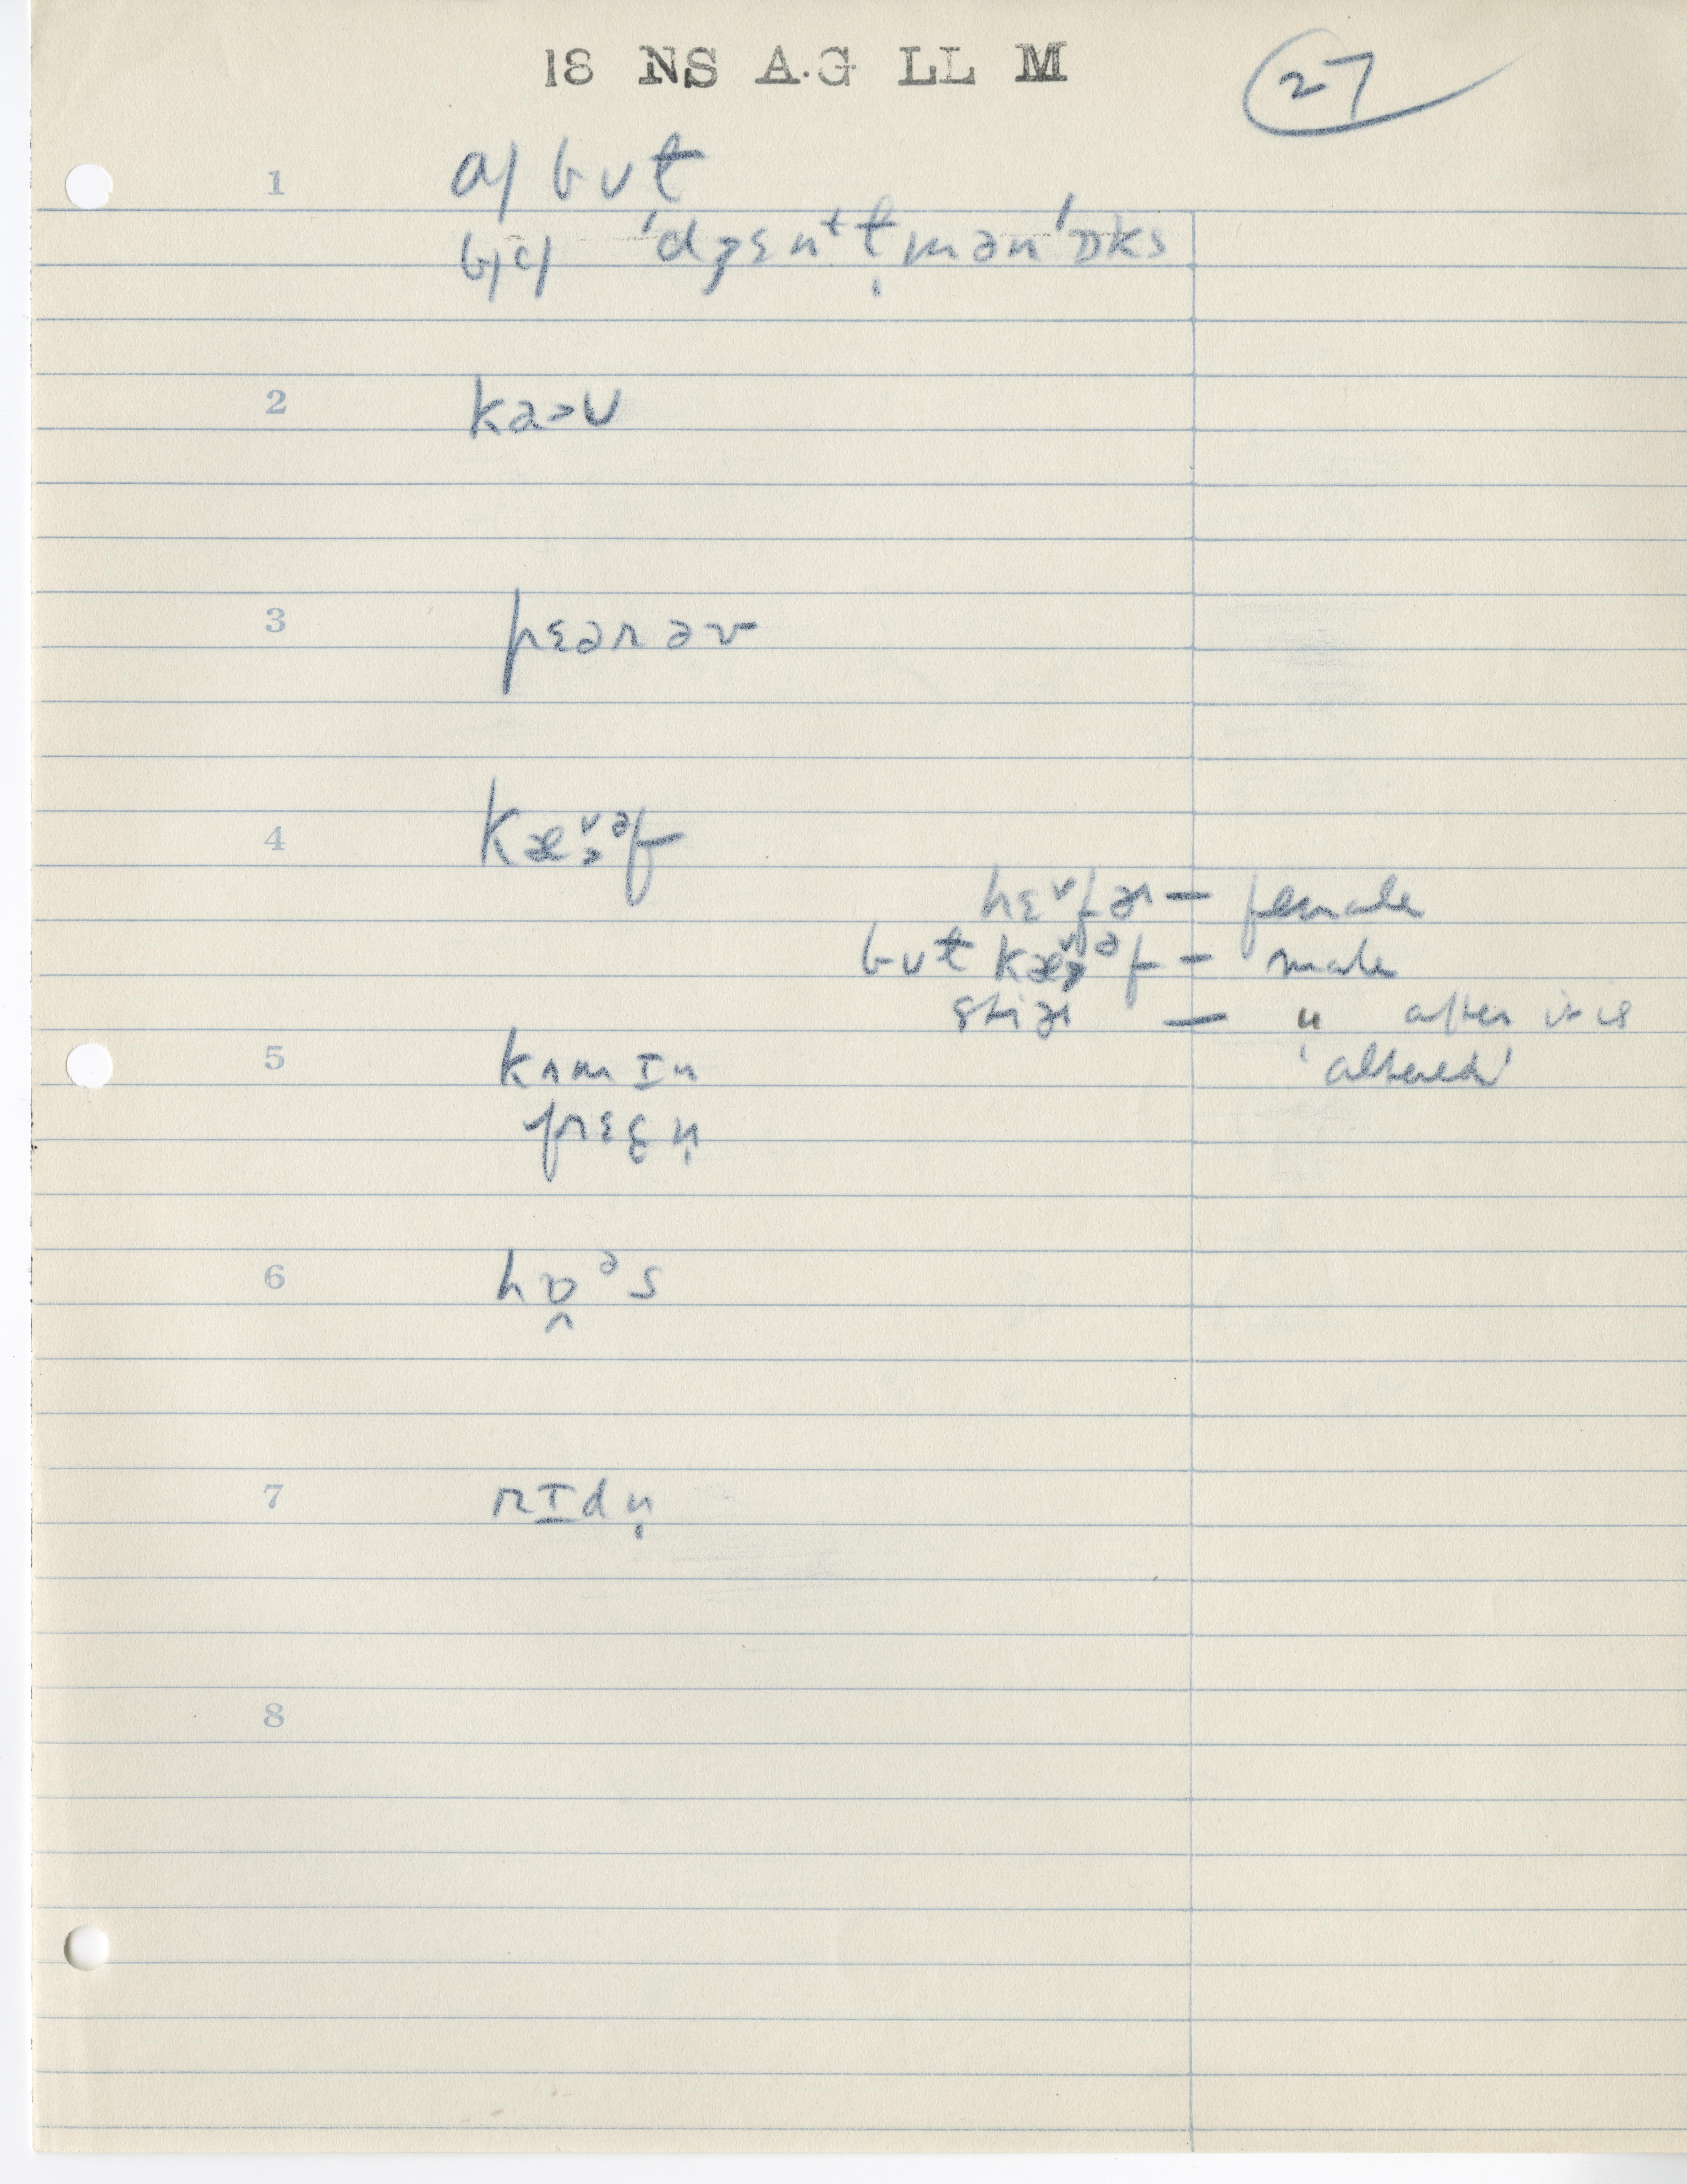 18 NS A.G LL M
27
1 a) bʊt
b) c) 'dʒɛnᵗt̩mən'ɒks
2 ka>ʊ
3 pɛərəv
4 kæːᵊf
hɛ˅fɚ — female
bʊt kæᵊf — male
stiɚ — " after it is
'altered'
5 kʌmɪn
frɛʃn̩
6 hɒᵊs
7 rɪdn̩
8